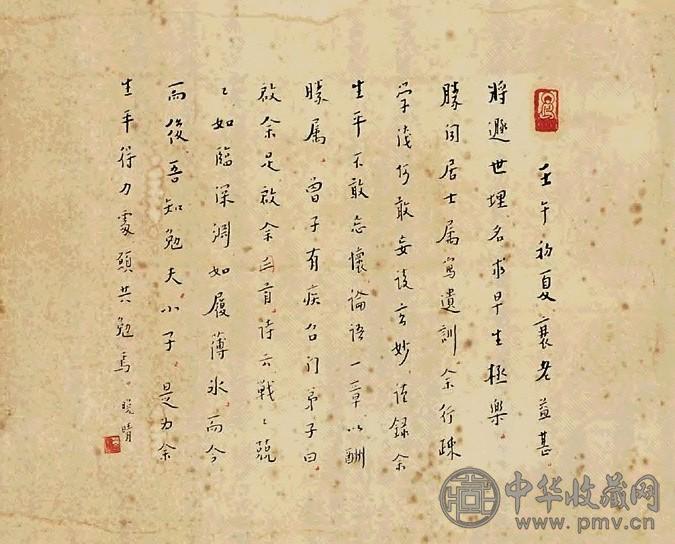 壬午初夏衰老益甚
將遯世埋名求早生極樂
勝閏居士属寫遺訓余行疎
学淺何敢妄談玄妙謹録余
生平不敢忘懷論語一章以酬
勝属曾子有疾召门弟子曰
啟余足啟余手詩云戰〻兢
〻如臨深淵如履薄氷而今
而後吾知免夫小子是为余
生平得力處願共勉焉晚晴
中华收藏网
www.pmv.cn